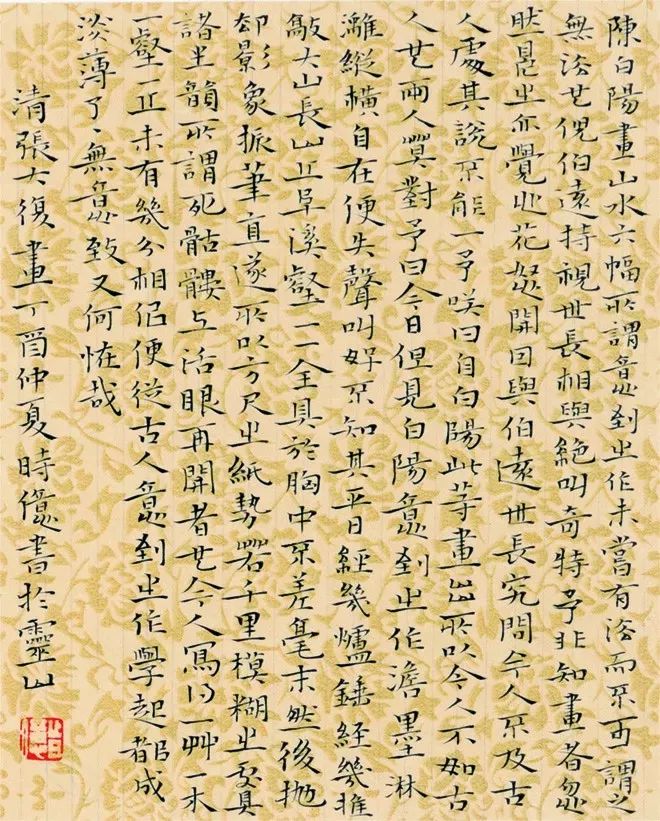 陳白陽畫山水六幅所謂意到之作未嘗有法而不可謂之
無法也倪伯遠持視世長相與絶叫奇特予非知畫者忽
然見之亦覺心花怒開因與伯遠世長究問今人不及古
人處其說不能一予咲曰自白陽此等畫出所以今人不如古
人也兩人冥對予曰今日但見白陽意到之作澹墨淋
漓縱橫自在便失聲叫好不知其平日經幾爐錘經幾推
敲大山長山丘阜溪壑一一全具於胸中不差毫末然後拋
却影象振筆直遂所以方尺之紙勢若千里模糊之處具
諸生韻所謂死骷髏上活眼再開者也今人寫得一艸一木
一壑一丘未有幾分相佀便從古人意到之作學起都成
淡薄了〻無意致又何怪哉
清張大復畫丁酉仲夏時億書於靈山